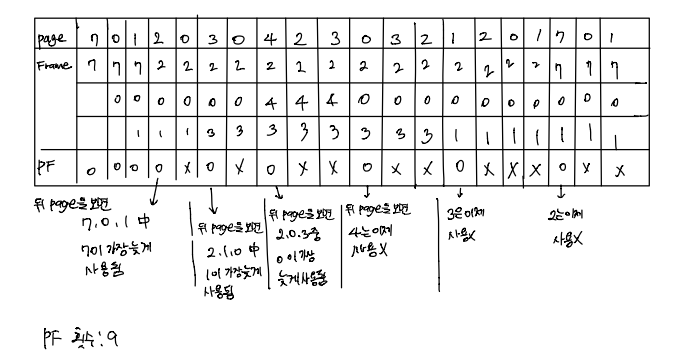 page 7 0 1 2 0 3 0 4 2 3 0 3 2 1 2 0 1 7 0 1
Frame 7 7 7 2 2 2 2 2 2 2 2 2 2 2 2 2 2 7 7 7
0 0 0 0 0 0 4 4 4 0 0 0 0 0 0 0 0 0 0
1 1 1 3 3 3 3 3 3 3 3 1 1 1 1 1 1 1
PF 0 0 0 0 X 0 X 0 X X 0 X X 0 X X X 0 X X
뒤 page을 보면
7, 0, 1 中
7이 가장 늦게
사용됨
뒤 page을 보면
2, 1, 0 中
1이 가장 늦게
사용됨
뒤 page을 보면
2, 0, 3 중
0이 가장
늦게 사용됨
뒤 page을 보면
4는 이제
사용 X
3은 이제
사용X
2는 이제
사용X
PF 횟수: 9